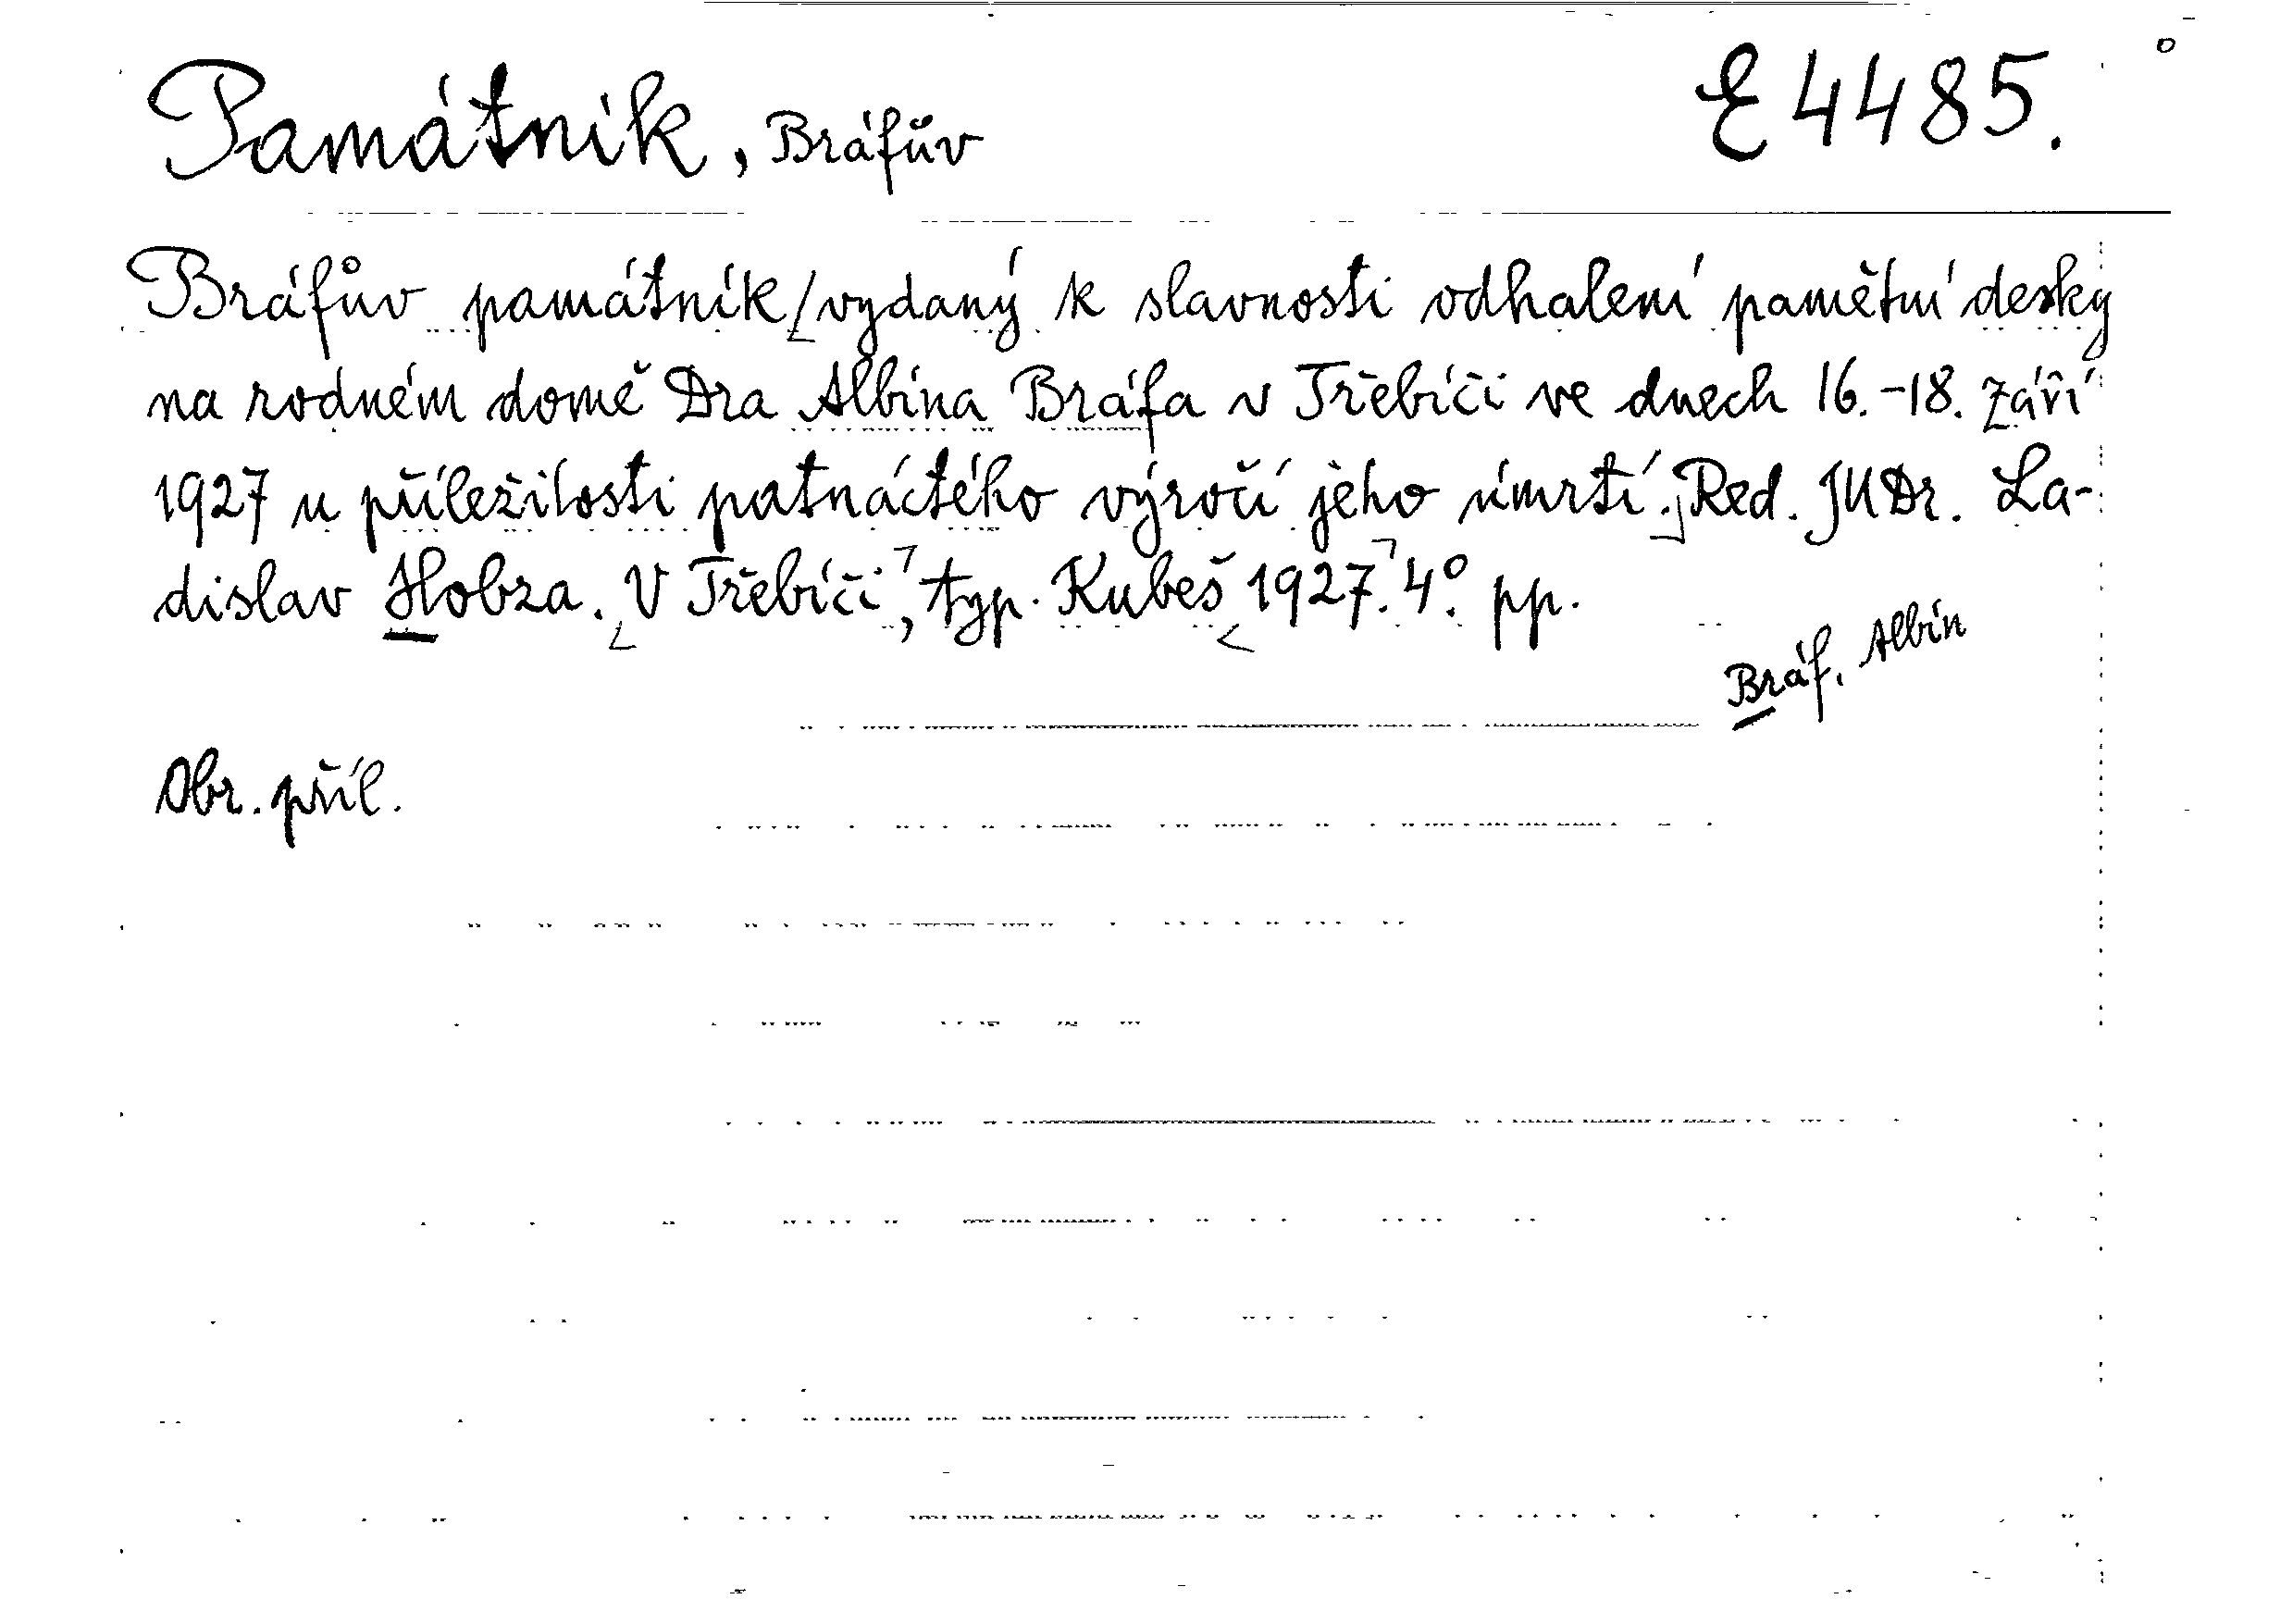 Památník, Bráfův
E 4485.
Bráfův památník vydaný k slavnosti odhalení pamětní desky
na rodném domě Dra Albína Bráfa v Třebíči ve dnech 16.-18. září
1927 u příležitosti patnáctého výročí jeho úmrtí. Red. JUDr. La-
dislav Hobza. V Třebíči, typ. Kubeš 1927. 4°. pp.
Bráf, Albín
Obr. příl.